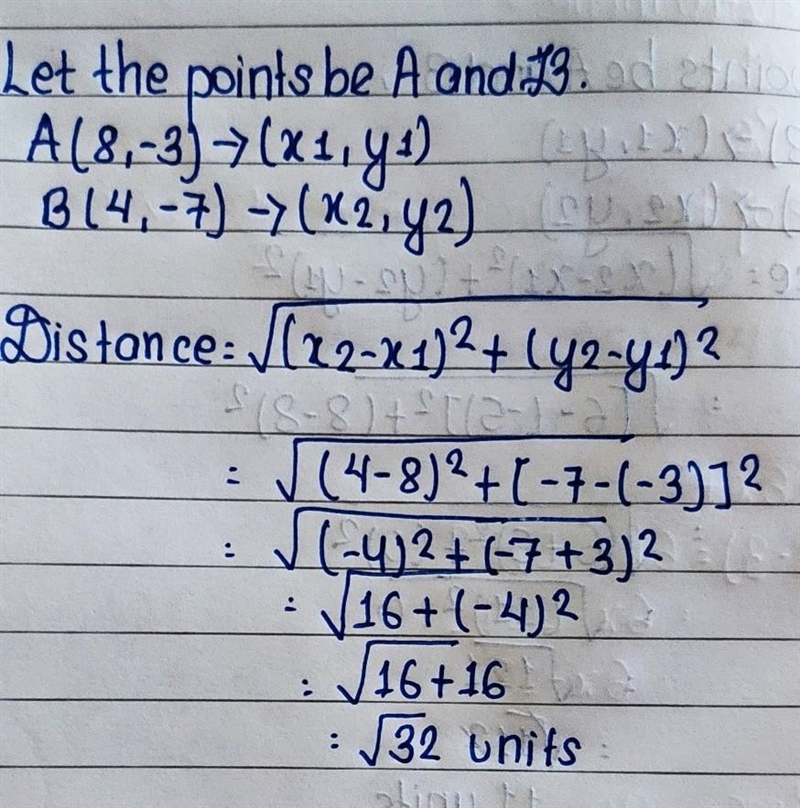 Let the points be A and B.
A(8,-3)→(x1,y1)
B(4,-7)→(x2,y2)
Distance=√(x2-x1)²+(y2-y1)²
=√(4-8)²+[-7-(-3)]²
=√(-4)²+(-7+3)²
=√16+(-4)²
=√16+16
=√32 units